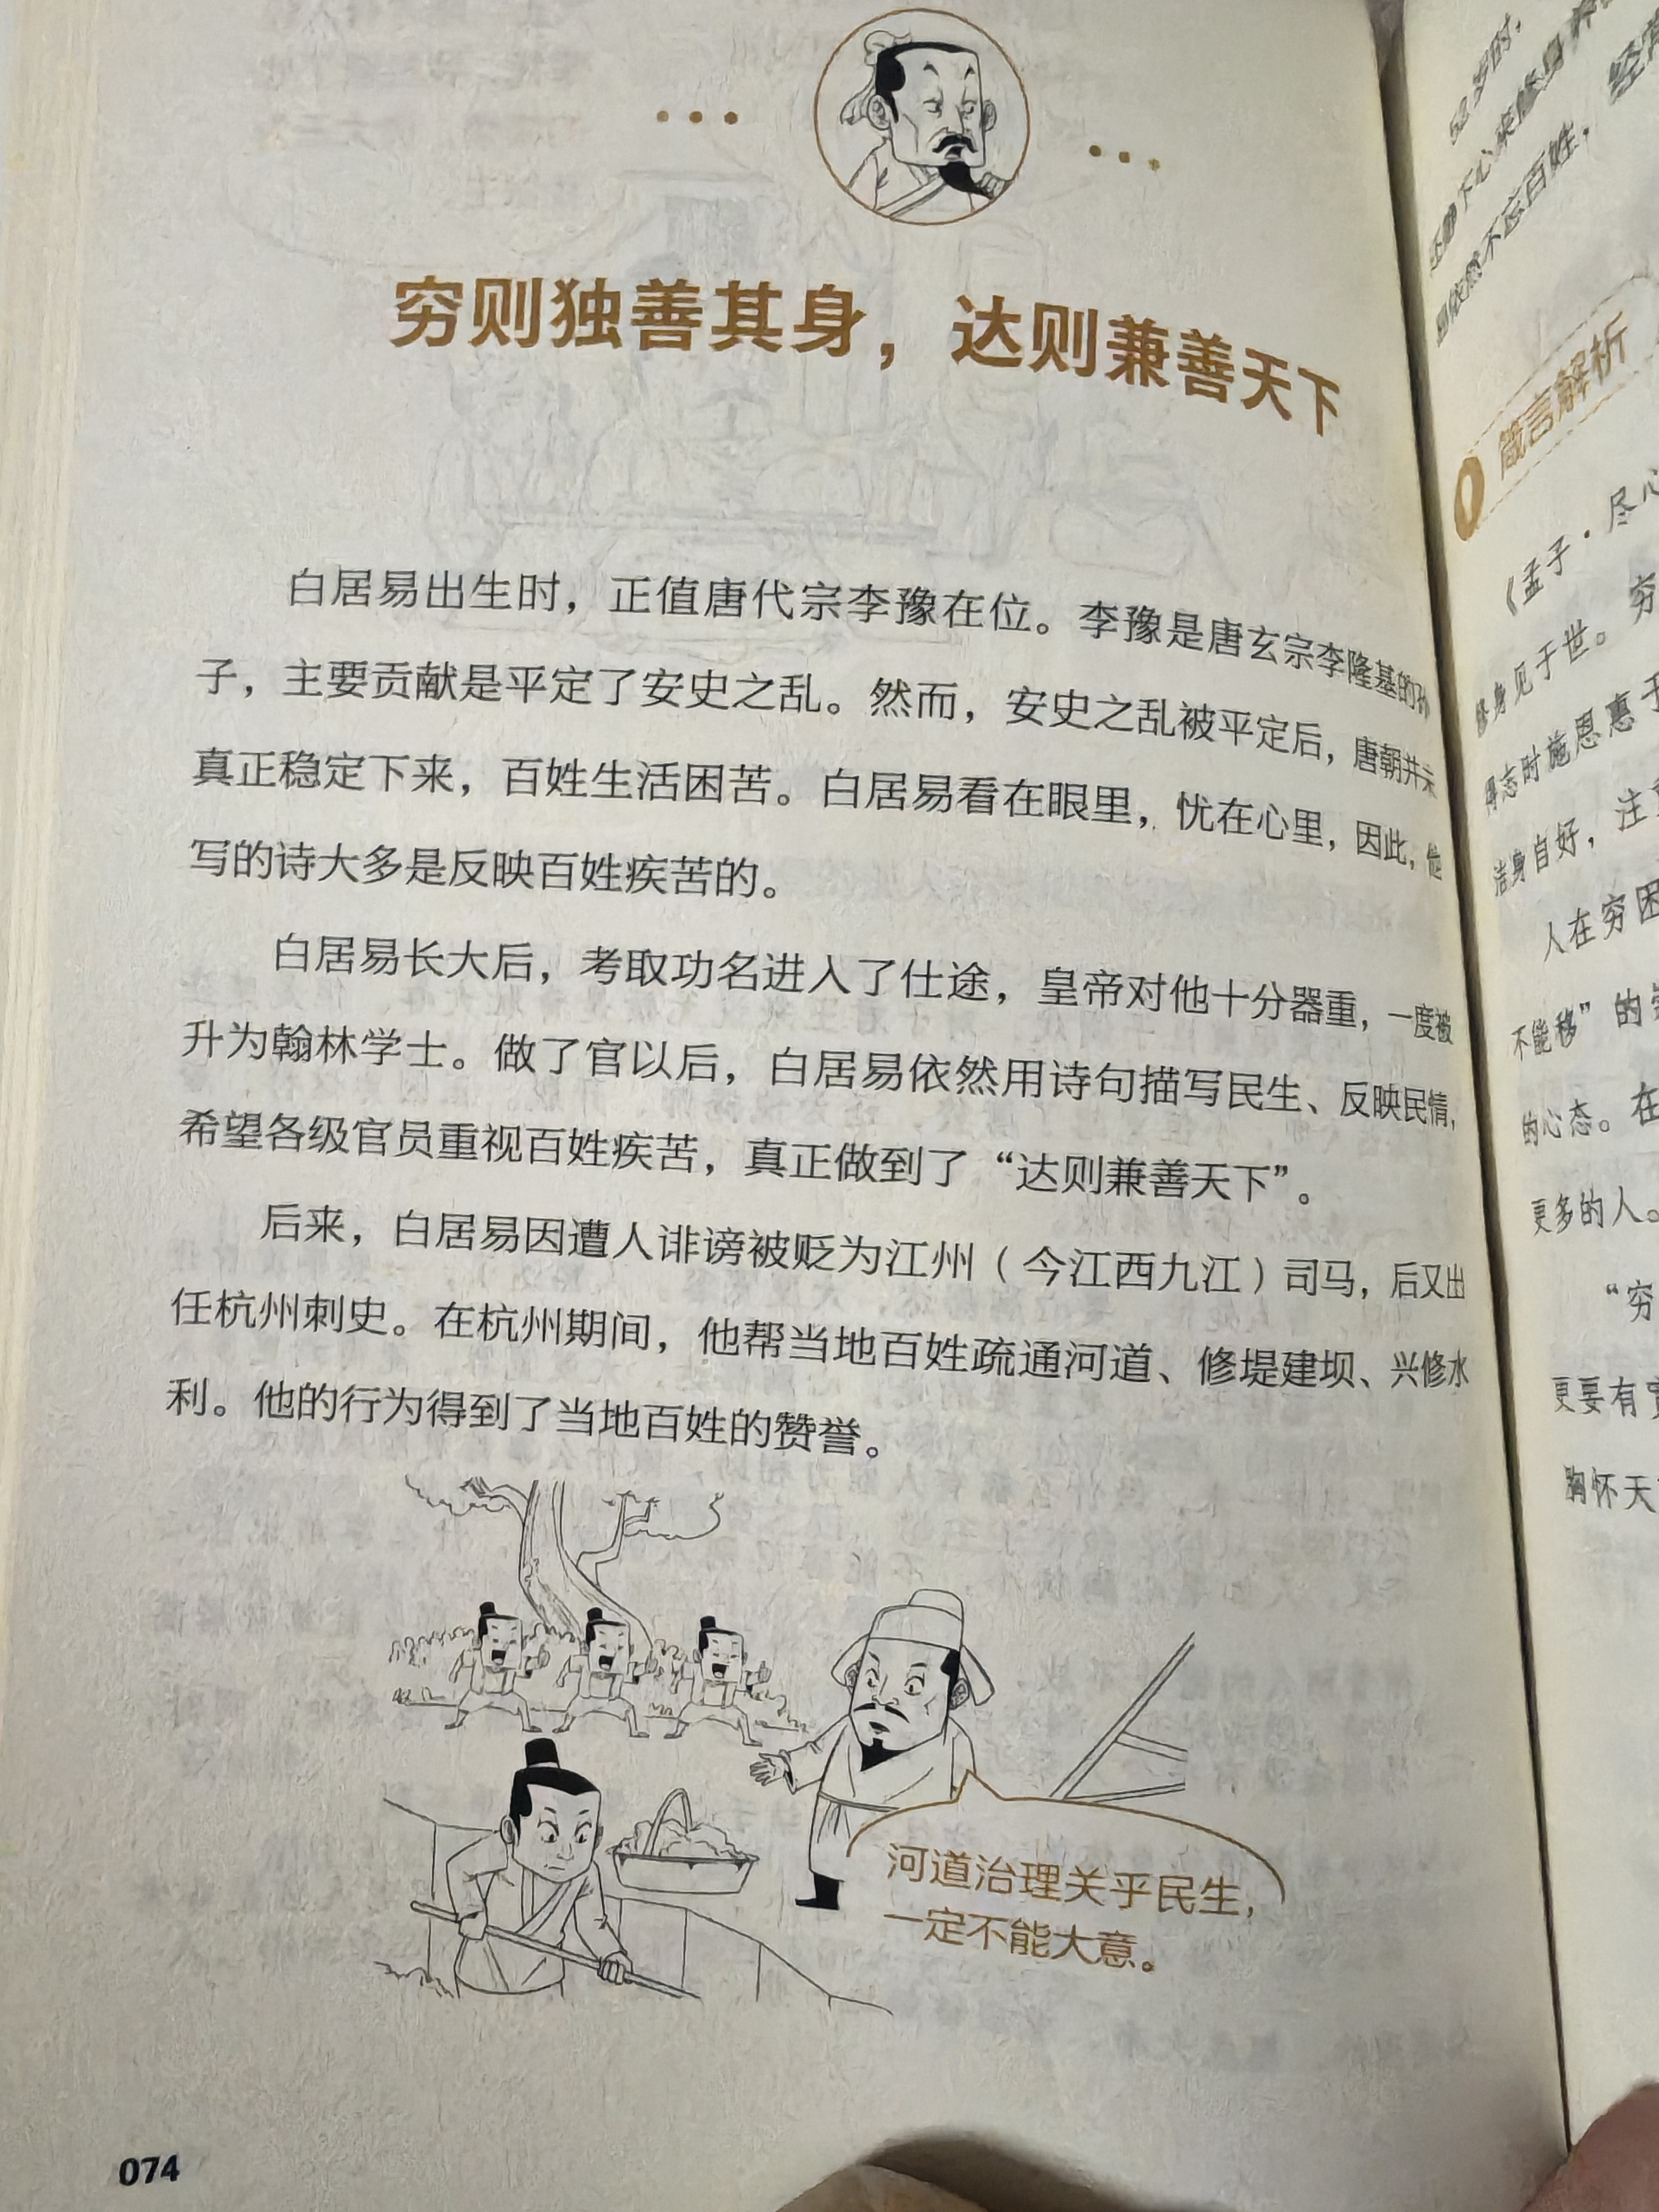 穷则独善其身，达则兼善天下
白居易出生时，正值唐代宗李豫在位。李豫是唐玄宗李隆基的孙
子，主要贡献是平定了安史之乱。然而，安史之乱被平定后，唐朝并未
真正稳定下来，百姓生活困苦。白居易看在眼里，忧在心里，因此，他
写的诗大多是反映百姓疾苦的。
白居易长大后，考取功名进入了仕途，皇帝对他十分器重，一度被
升为翰林学士。做了官以后，白居易依然用诗句描写民生、反映民情，
希望各级官员重视百姓疾苦，真正做到了“达则兼善天下”。
后来，白居易因遭人诽谤被贬为江州（今江西九江）司马，后又出
任杭州刺史。在杭州期间，他帮当地百姓疏通河道、修堤建坝、兴修水
利。他的行为得到了当地百姓的赞誉。
河道治理关乎民生，
一定不能大意。
074
52岁时，
还静下心来修身养
但依然不忘百姓，经常
箴言解析
《孟子·尽心
修身见于世。穷
得志时施恩惠于
洁身自好，注重
人在穷困
不能移”的
的心态。在
更多的人。
“穷
更要有
胸怀天